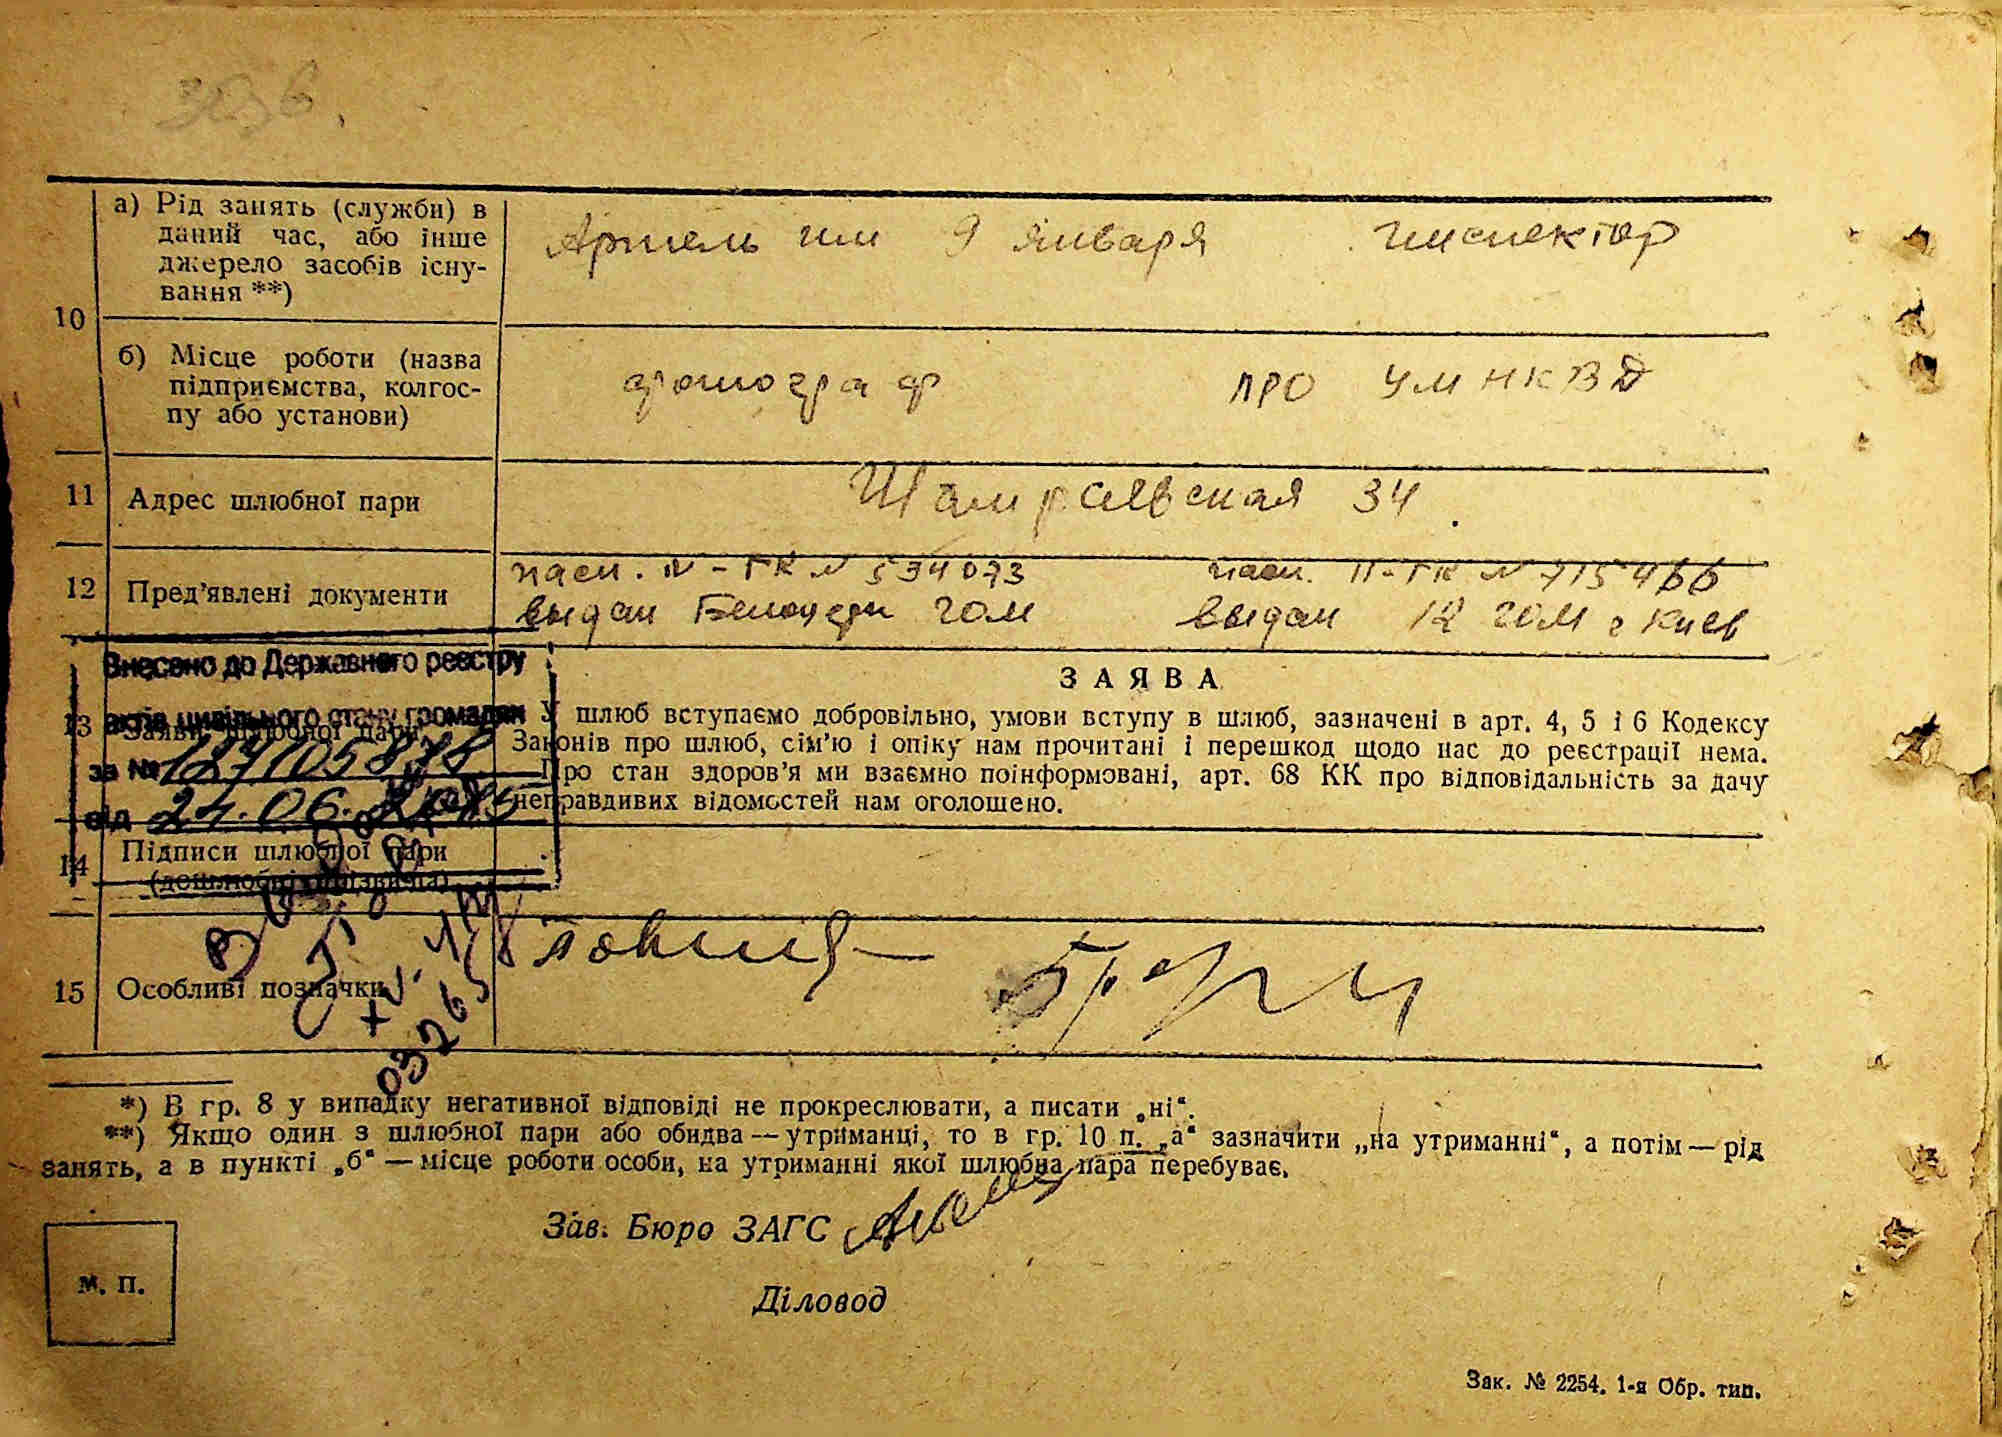 10
а) Рід занять (служби) в
даний час, або інше
джерело засобів існу-
вання **)
Артель им 9 января инспектор
б) Місце роботи (назва
підприємства, колгос-
пу або установи)
фотограф ПРО УМ НКВД
11 Адрес шлюбної пари
34
12 Пред’явлені документи
пасп. IV-ГК N 534073 пасп. II-ГК N 715466
выдан Белоцерк ГОМ выдан 12 ГОМ г Киев
Внесено до Державного реєстру
актів цивільного стану громадян
за № 127105878
від 24.06.2025
13 Заяви шлюбної пари
ЗАЯВА
У шлюб вступаємо добровільно, умови вступу в шлюб, зазначені в арт. 4, 5 і 6 Кодексу
Законів про шлюб, сім’ю і опіку нам прочитані і перешкод щодо нас до реєстрації нема.
Про стан здоров’я ми взаємно поінформовані, арт. 68 КК про відповідальність за дачу
неправдивих відомостей нам оголошено.
14 Підписи шлюбної пари
(дошлюбні прізвища)
15 Особливі позначки
*) В гр. 8 у випадку негативної відповіді не прокреслювати, а писати „ні“.
**) Якщо один з шлюбної пари або обидва — утриманці, то в гр. 10 п. „а“ зазначити „на утриманні“, а потім — рід
занять, а в пункті „б“ — місце роботи особи, на утриманні якої шлюбна пара перебуває.
Зав. Бюро ЗАГС
Діловод
М. П.
Зак. № 2254. 1-я Обр. тип.